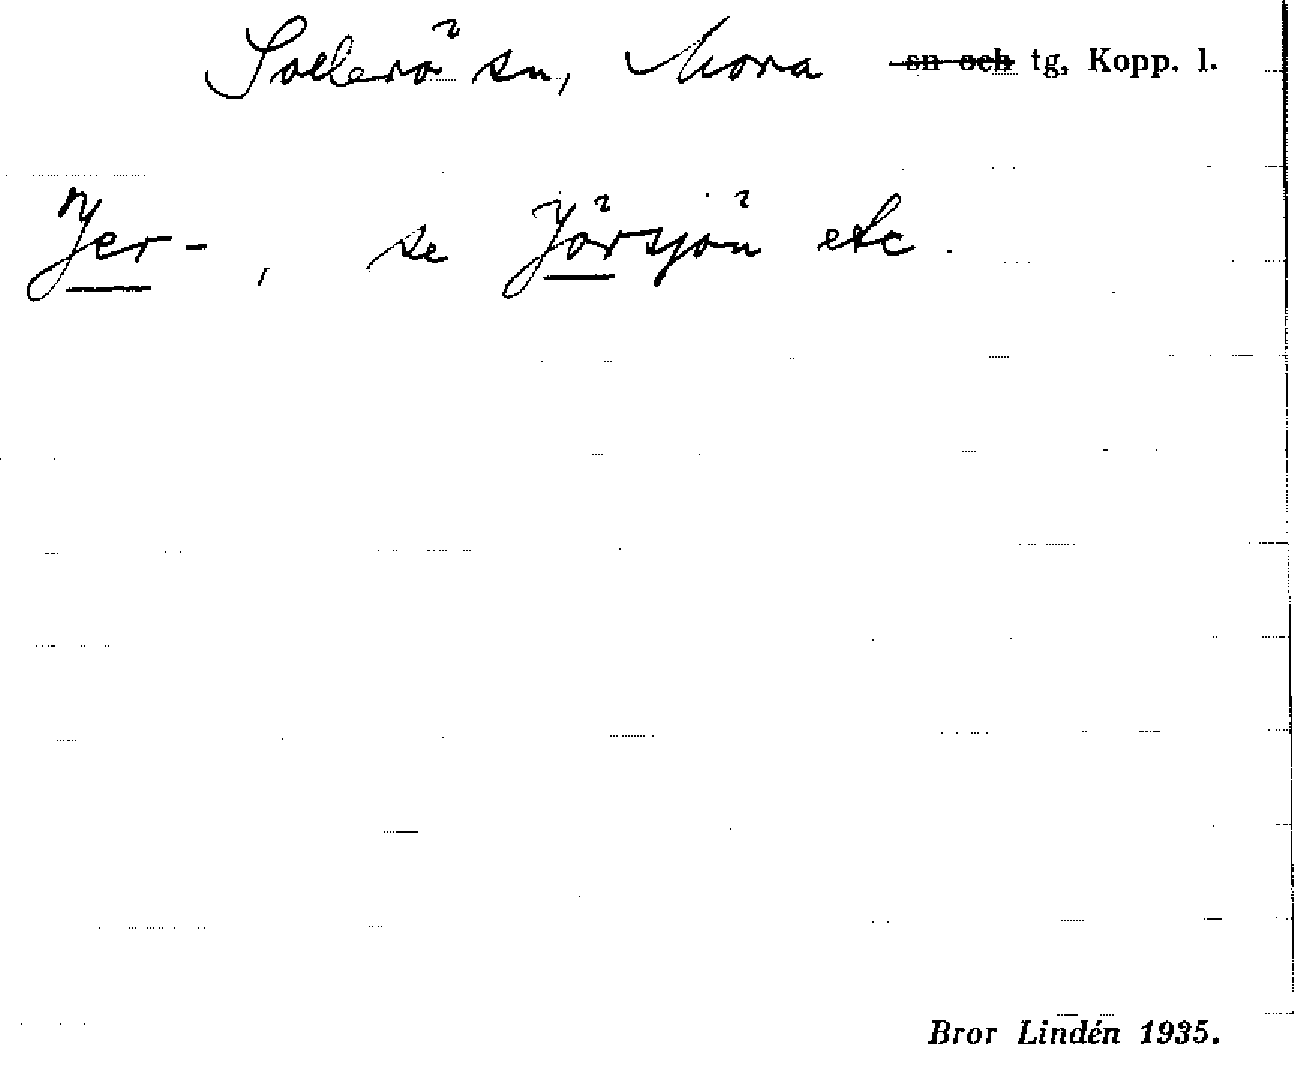 Sollerö sn, Mora sn och tg, Kopp. l.
Jer-, se Jörsjön etc.
Bror Lindén 1935.